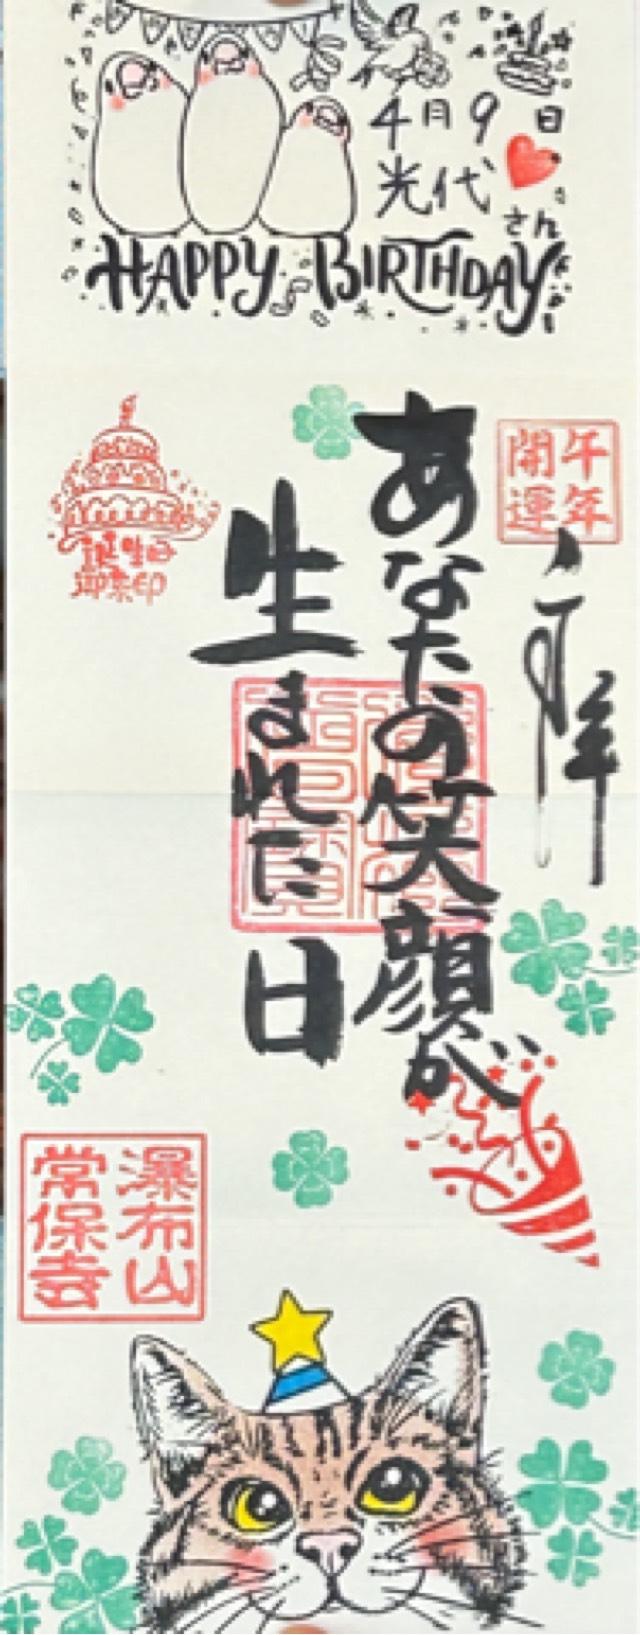 4月9日
光代さん
HAPPY BIRTHDAY
午年
開運
奉拝
あなたの笑顔が
生まれた日
誕生日
御朱印
瀑布山
常保寺